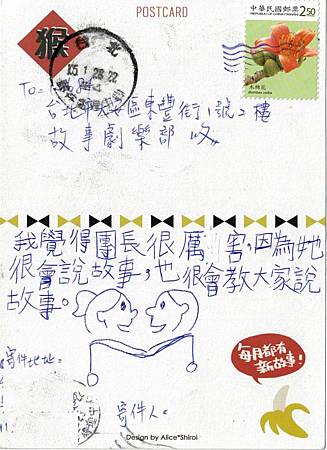 POSTCARD
猴
中華民國郵票
REPUBLIC OF CHINA (TAIWAN)
2.50
木棉花
台北
To:
台北市大安區東豐街1號2樓
故事劇樂部 收
我覺得團長很厲害,因為她
很會說故事,也很會教大家說
故事。
寄件地址:
寄件人:
每月都有
新故事!
Design by Alice*Shiroi